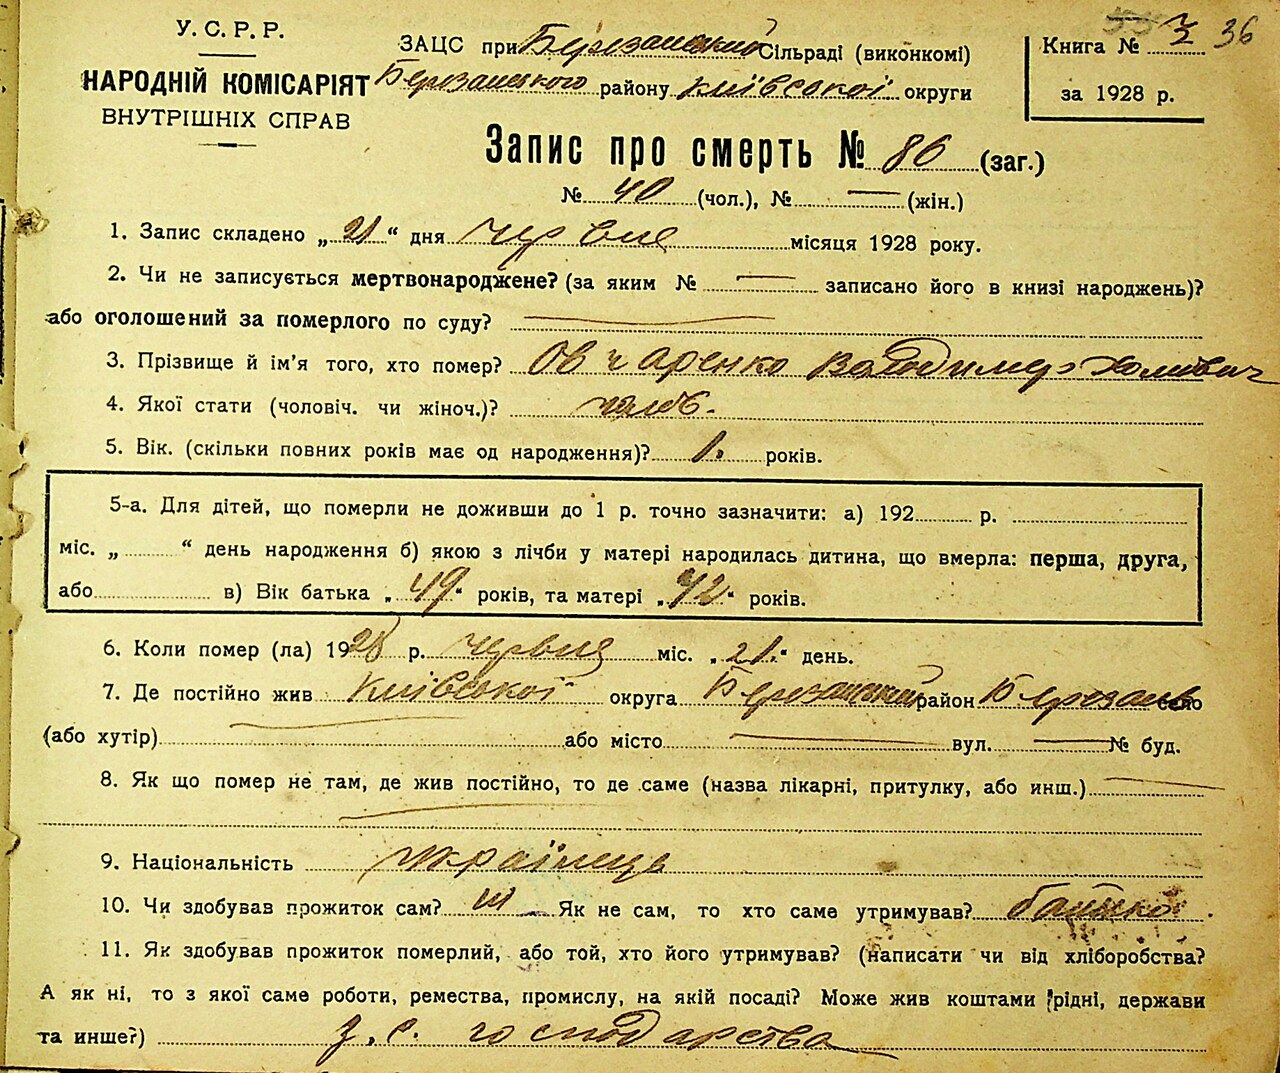 У. С. Р. Р.
НАРОДНІЙ КОМІСАРІЯТ
ВНУТРІШНІХ СПРАВ
ЗАЦС при Березанський Сільраді (виконкомі)
Березанського району Київської округи
Книга № 3 36
за 1928 р.
Запис про смерть № 86 (заг.)
№ 40 (чол.), № — (жін.)
1. Запис складено „ 21 “ дня червня місяця 1928 року.
2. Чи не записується мертвонароджене? (за яким № — записано його в книзі народжень)?
або оголошений за померлого по суду? —
3. Прізвище й ім’я того, хто помер? Овчаренко Володимер
4. Якої стати (чоловіч. чи жіноч.)? чолов.
5. Вік. (скільки повних років має од народження)? 1. років.
5-а. Для дітей, що померли не доживши до 1 р. точно зазначити: а) 192 р.
міс. „ “ день народження б) якою з лічби у матері народилась дитина, що вмерла: перша, друга,
або в) Вік батька „ 49 “ років, та матері „ 42 “ років.
6. Коли помер (ла) 1928 р. червня міс. „ 21. “ день.
7. Де постійно жив Київської округа Березанський район Березань село
(або хутір) — або місто — вул. — № буд.
8. Як що помер не там, де жив постійно, то де саме (назва лікарні, притулку, або инш.) —
9. Національність українець
10. Чи здобував прожиток сам? ні Як не сам, то хто саме утримував? батько.
11. Як здобував прожиток померлий, або той, хто його утримував? (написати чи від хліборобства?
А як ні, то з якої саме роботи, ремества, промислу, на якій посаді? Може жив коштами рідні, держави
та инше?) з. с. господарства